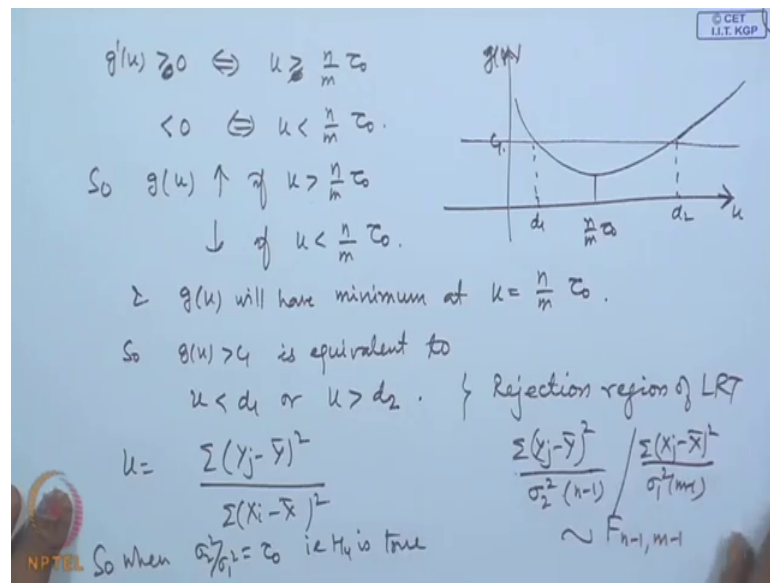 © CET
I.I.T. KGP
g'(u) ≥ 0 ⇔ u ≥ n/m τ₀
< 0 ⇔ u < n/m τ₀.
So g(u) ↑ if u > n/m τ₀
↓ if u < n/m τ₀.
g(u)
c₁
d₁ n/m τ₀ d₂ u
& g(u) will have minimum at u = n/m τ₀.
So g(u) > c₁ is equivalent to
u < d₁ or u > d₂. } Rejection region of LRT
u = Σ(Yj - Ȳ)² / Σ(Xi - X̄)²
Σ(Yj - Ȳ)² / σ₂²(n-1) / Σ(Xj - X̄)² / σ₁²(m-1)
~ F n-1, m-1
So when σ₂²/σ₁² = τ₀ ie H₄ is true
NPTEL